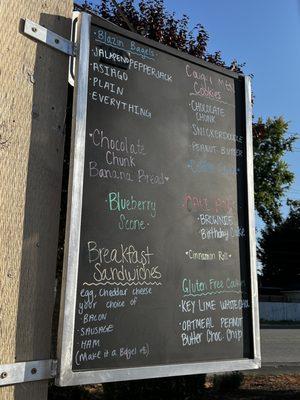 Blazin Bagels
· JALAPENO
· PEPPERJACK
· ASIAGO
· PLAIN
· EVERYTHING
· Chocolate
Chunk
Banana Bread
· Blueberry
Scone ·
Breakfast
Sandwiches
egg, cheddar cheese
your choice of
· BACON
· SAUSAGE
· HAM
(Make it a Bagel $1)
Cookies
· CHOCOLATE
CHUNK
· SNICKERDOODLE
· PEANUT BUTTER
CAKE
· BROWNIE
· Birthday Cake
· Cinnamon Roll ·
Gluten Free
· KEY LIME WHITE
· OATMEAL PEANUT
Butter CHOC CHIP